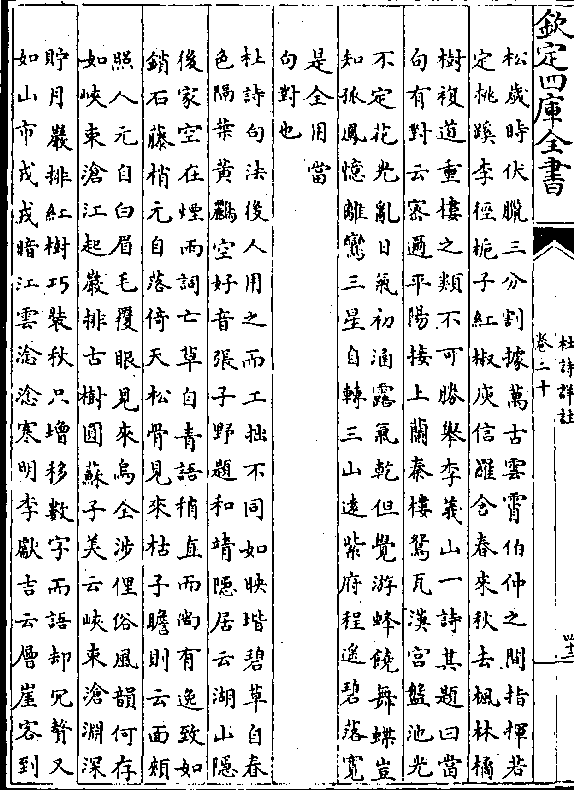 欽定四庫全書
杜詩詳註
卷二十
松歲時伏臘三分割據萬古雲霄伯仲之間指揮若
定桃蹊李徑梔子紅椒庾信羅含春來秋去楓林橘
樹複道重樓之類不可勝舉李義山一詩其題曰當
句有對云密邇平陽接上蘭秦樓鴛瓦漢宮盤池光
不定花光亂日氣初涵露氣乾但覺游蜂饒舞蝶豈
知孤鳳憶離鸞三星自轉三山遠紫府程遙碧落寬
是全用當
句對也
杜詩句法後人用之而工拙不同如映堦碧草自春
色隔葉黃鸝空好音張子野題和靖隱居云湖山隱
後家空在煙雨詞亡草自青語稍直而尚有逸致如
鎖石藤梢元自落倚天松骨見來枯子瞻則云面頰
照人元自白眉毛覆眼見來烏全涉俚俗風韻何存
如峽束滄江起巖排古樹圓蘇子美云峽束滄淵深
貯月巖排紅樹巧裝秋只增移數字而語却冗贅又
如山市戎戎暗江雲淰淰寒明李獻吉云層崖客到